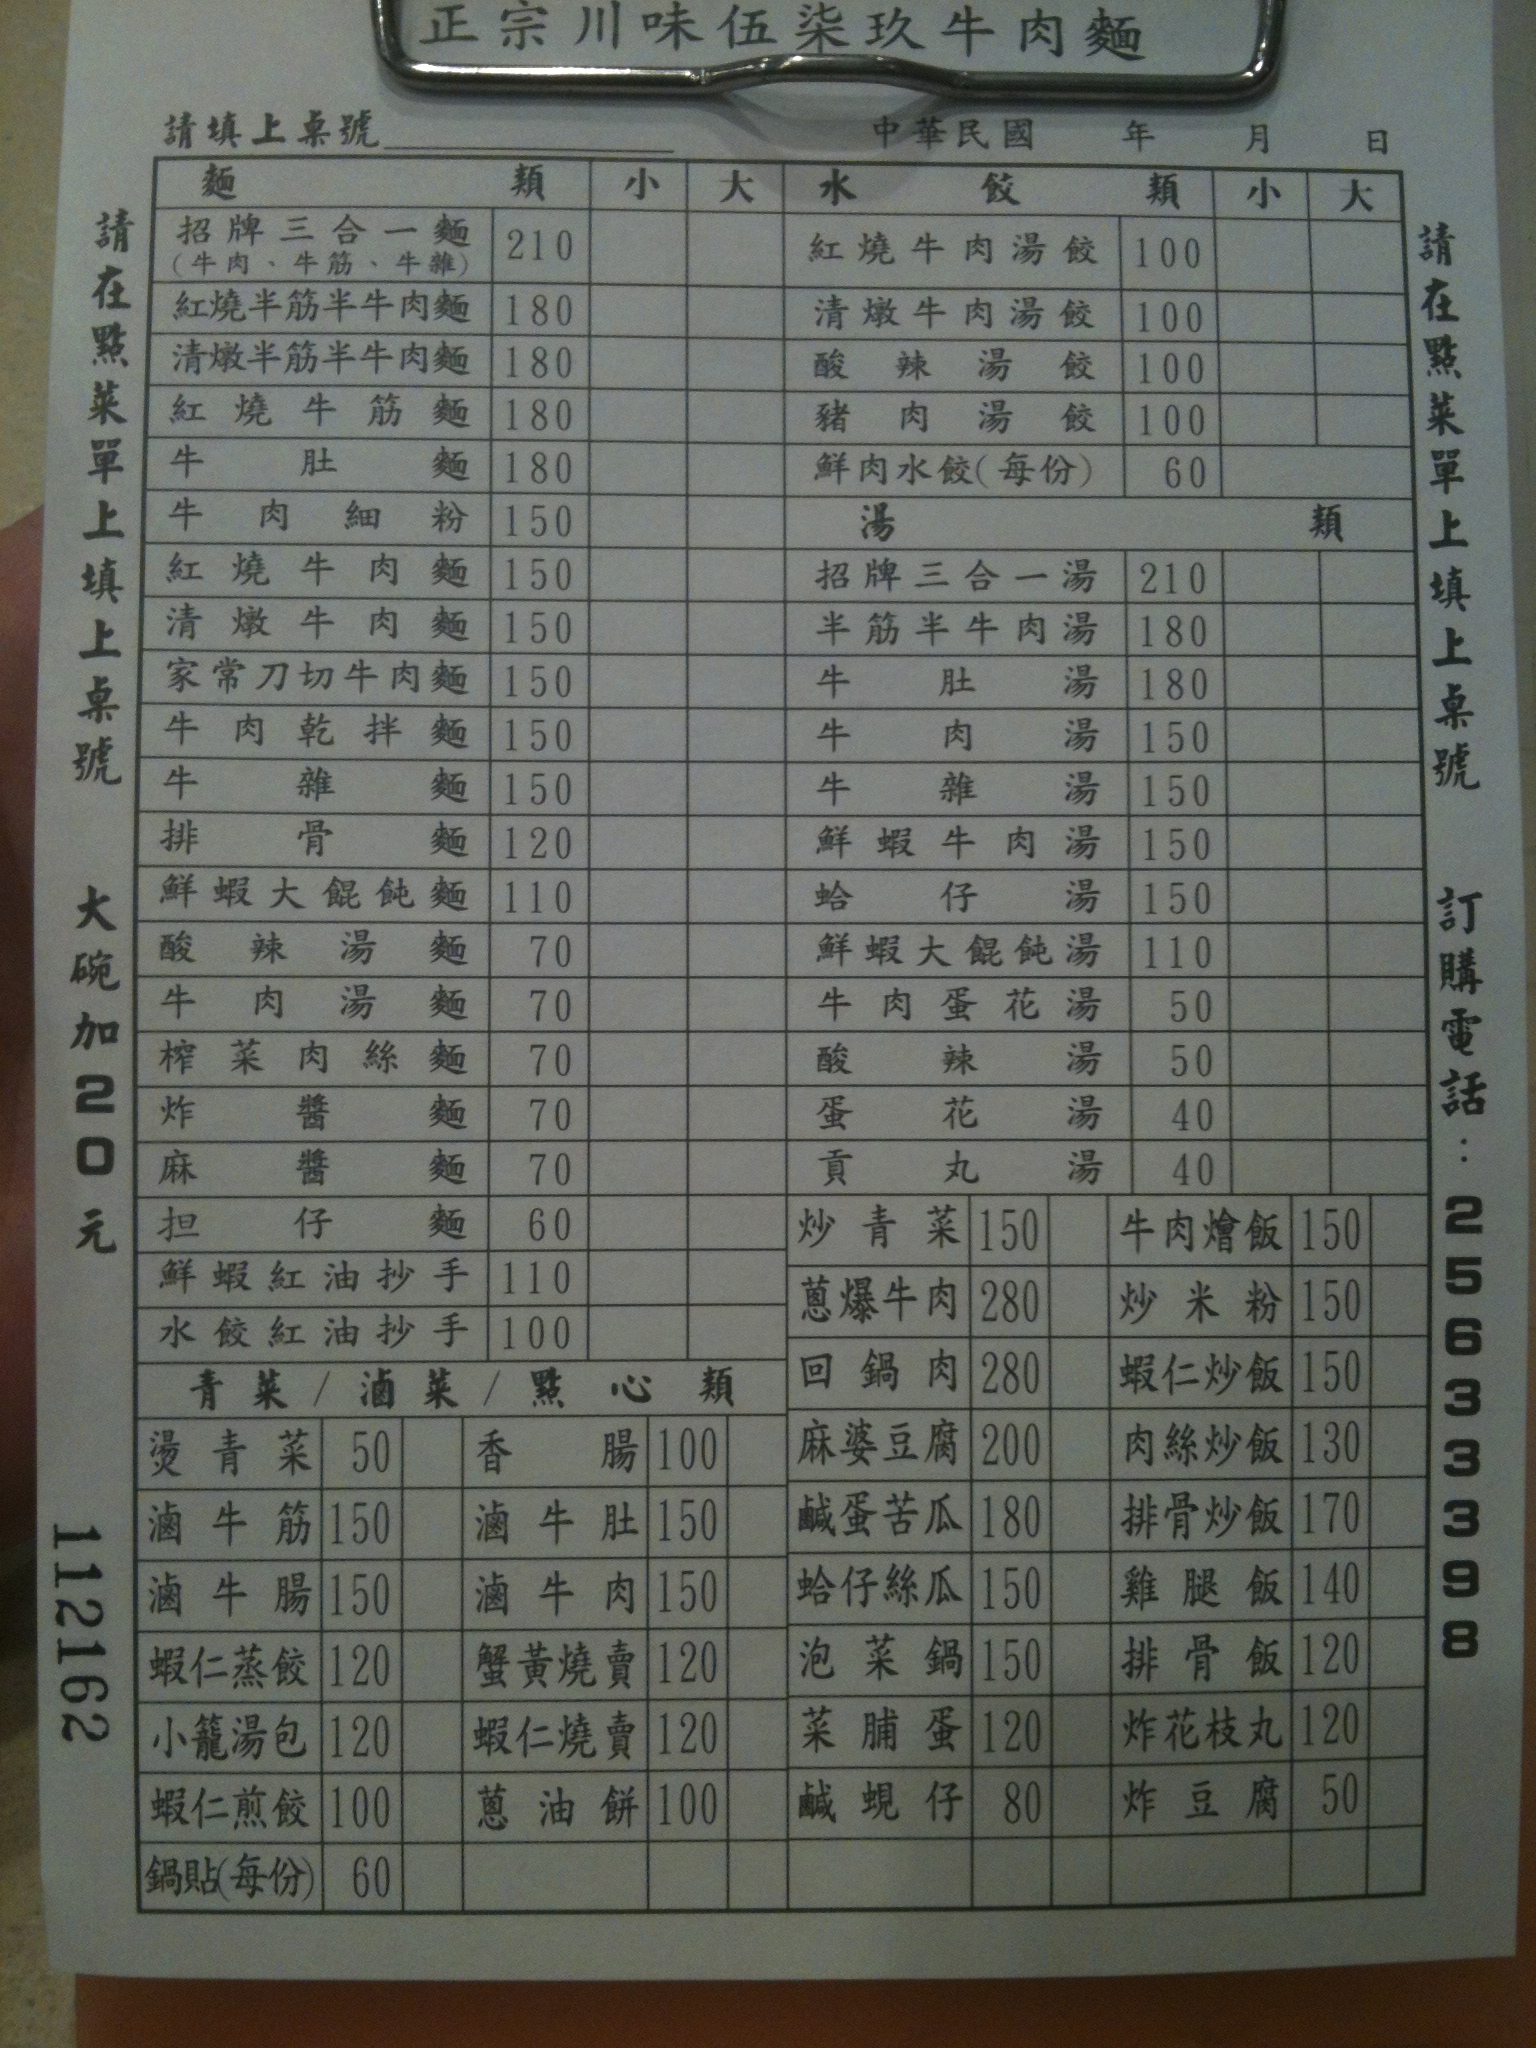 正宗川味伍柒玖牛肉麵
請填上桌號
中華民國 年 月 日
請在點菜單上填上桌號 大碗加20元
112162
麵 類 小 大
招牌三合一麵 210
(牛肉、牛筋、牛雜)
紅燒半筋半牛肉麵 180
清燉半筋半牛肉麵 180
紅燒牛筋麵 180
牛肚麵 180
牛肉細粉 150
紅燒牛肉麵 150
清燉牛肉麵 150
家常刀切牛肉麵 150
牛肉乾拌麵 150
牛雜麵 150
排骨麵 120
鮮蝦大餛飩麵 110
酸辣湯麵 70
牛肉湯麵 70
榨菜肉絲麵 70
炸醬麵 70
麻醬麵 70
担仔麵 60
鮮蝦紅油抄手 110
水餃紅油抄手 100
青菜/滷菜/點心類
燙青菜 50 香腸 100
滷牛筋 150 滷牛肚 150
滷牛腸 150 滷牛肉 150
蝦仁蒸餃 120 蟹黃燒賣 120
小籠湯包 120 蝦仁燒賣 120
蝦仁煎餃 100 蔥油餅 100
鍋貼(每份) 60
水餃類 小 大
紅燒牛肉湯餃 100
清燉牛肉湯餃 100
酸辣湯餃 100
豬肉湯餃 100
鮮肉水餃(每份) 60
湯 類
招牌三合一湯 210
半筋半牛肉湯 180
牛肚湯 180
牛肉湯 150
牛雜湯 150
鮮蝦牛肉湯 150
蛤仔湯 150
鮮蝦大餛飩湯 110
牛肉蛋花湯 50
酸辣湯 50
蛋花湯 40
貢丸湯 40
炒青菜 150 牛肉燴飯 150
蔥爆牛肉 280 炒米粉 150
回鍋肉 280 蝦仁炒飯 150
麻婆豆腐 200 肉絲炒飯 130
鹹蛋苦瓜 180 排骨炒飯 170
蛤仔絲瓜 150 雞腿飯 140
泡菜鍋 150 排骨飯 120
菜脯蛋 120 炸花枝丸 120
鹹蜆仔 80 炸豆腐 50
請在點菜單上填上桌號 訂購電話:25633398